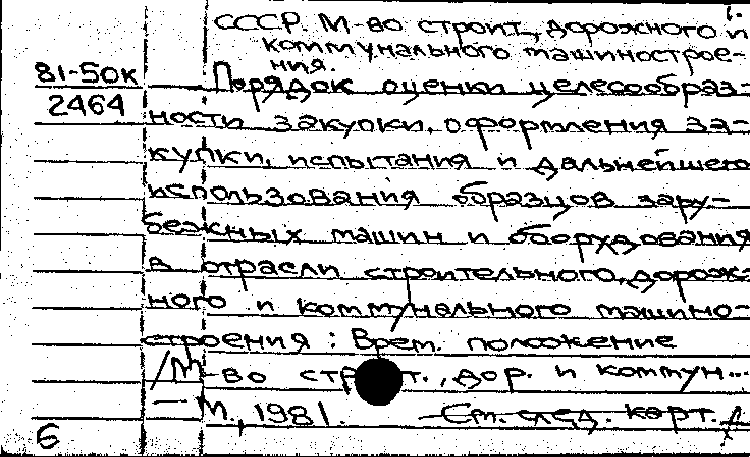 1.
СССР. М-во строит., дорожного и
коммунального машинострое-
ния.
81-50к
2464
Порядок оценки целесообраз-
ности закупки, оформления за-
купки, испытания и дальнейшего
использования образцов зару-
бежных машин и оборудования
в отрасли строительного, дорож-
ного и коммунального машино-
строения : Врем. положение
/М-во строит., дор. и коммун...
— М., 1981. — См. след. карт.
6